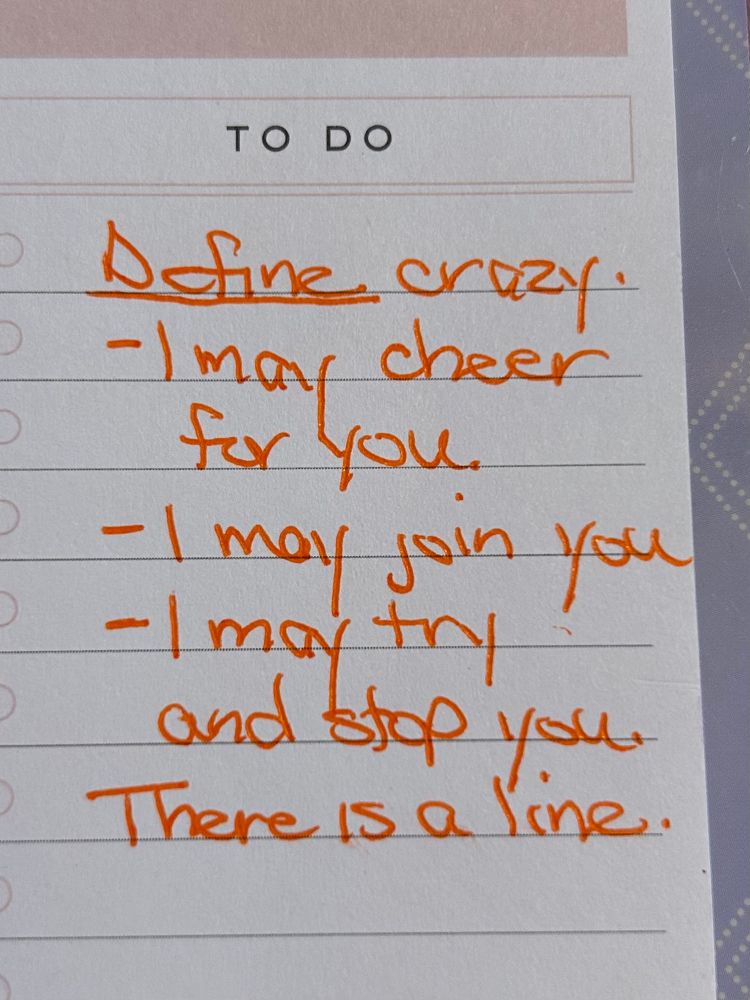 TO DO
Define crazy.
- I may cheer
for you.
- I may join you
- I may try
and stop you.
There is a line.